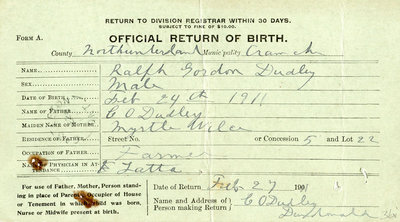 RETURN TO DIVISION REGISTRAR WITHIN 30 DAYS.
SUBJECT TO FINE OF $10.00.
FORM A. OFFICIAL RETURN OF BIRTH.
County Northumberland Municipality Cramahe
NAME Ralph Gordon Dudley
SEX Male
DATE OF BIRTH Feb 24th 1911
NAME OF FATHER C O Dudley
MAIDEN NAME OF MOTHER Myrtle
RESIDENCE OF FATHER Street No. or Concession 5 and Lot 22
OCCUPATION OF FATHER Farmer
NAME OF PHYSICIAN IN ATTENDANCE
For use of Father, Mother, Person standing in place of Parent, Occupier of House or Tenement in which Child was born, Nurse or Midwife present at birth.
Date of Return Feb 27 190
Name and Address of Person making Return C O Dudley